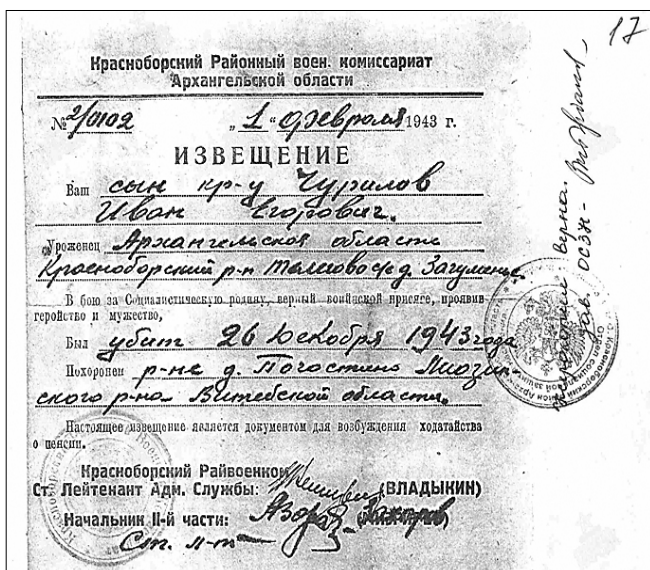 17
Красноборский Районный воен. комиссариат
Архангельской области
№ 2/0102 „1" февраля 1943 г.
ИЗВЕЩЕНИЕ
Ваш сын кр-ц Чурилов
Иван Егорович.
Уроженец Архангельской области
Красноборский р-н д. Загуменье
В бою за Социалистическую родину, верный воинской присяге, проявив
геройство и мужество,
Был убит 26 декабря 1943 года
Похоронен р-не д. Погостино Лиозн-
ского р-на Витебской области.
Настоящее извещение является документом для возбуждения ходатайства
о пенсии.
Красноборский Райвоенком
Ст. Лейтенант Адм. Службы: (ВЛАДЫКИН)
Начальник II-й части:
Ст. л-т
верна.
зав. ОСЗН -